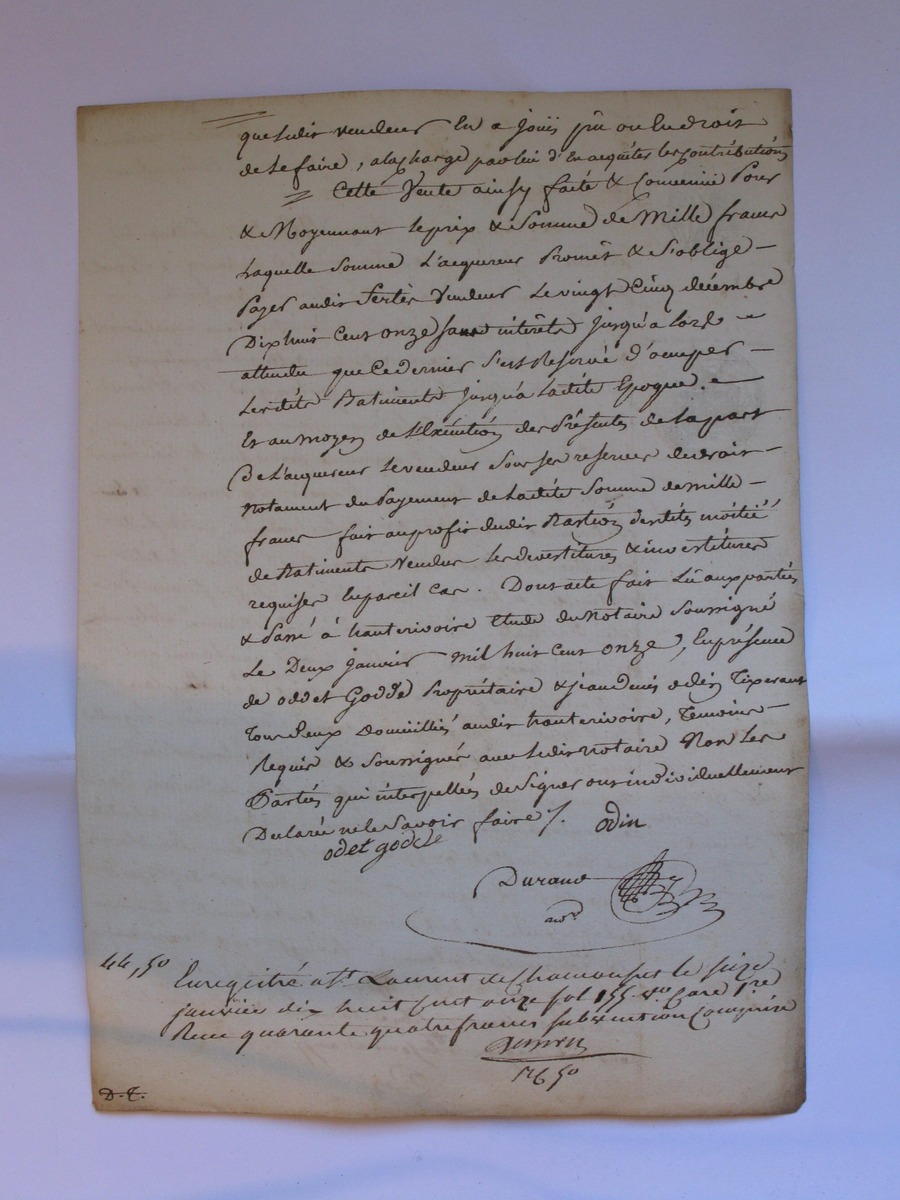 que ledit vendeur En a Joüi pû ou Eu droit
de le faire, a la charge par lui d'En acquiter les contributions
Cette Vente ainsy faite & Convenüe Pour
& Moyennant le prix & Somme de Mille francs
Laquelle Somme L'acquereur Promêt & S'oblige
Payer audit Vendeur Le vingt Cinq décembre
Dix huit Cent onze sans intérêts Jusqu'a lors
attendu que Ce dernier S'est Reservé d'occuper
Lesdits Batiments Jusqu'à Ladite Epoque.
Et au moyen de L'Exécution des Présentes de La part
De L'acquereur Le vendeur Sous ses reserves de droit
Notament du Payement de Ladite Somme de mille
francs fait au profit dudit desdits moitié
de Batiments Vendus Les devestitures & investitures
requises En pareil Cas. Dont acte fait Lû aux parties
& Passé à hauterivoire Etude du Notaire Soussigné
Le Deux Janvier mil huit Cent onze, En présence
de oddet Godde Propriétaire & Jean Denis odin Tixerant
Tous Deux Domicilliés audit hauterivoire, Temoins
Requis & Soussignés avec Ledit Notaire Non Les
Parties qui interpellées de Signer ont individuellement
Déclarée ne le Savoir faire %.
odet godde odin
Durand
not.re
44,50
Enregistré a St. Laurent de Chamousset le Seize
janvier dix huit Cent onze fol 155. v.o Case 1.re
Reçu quarante quatre francs subvention Comprise
D. T.